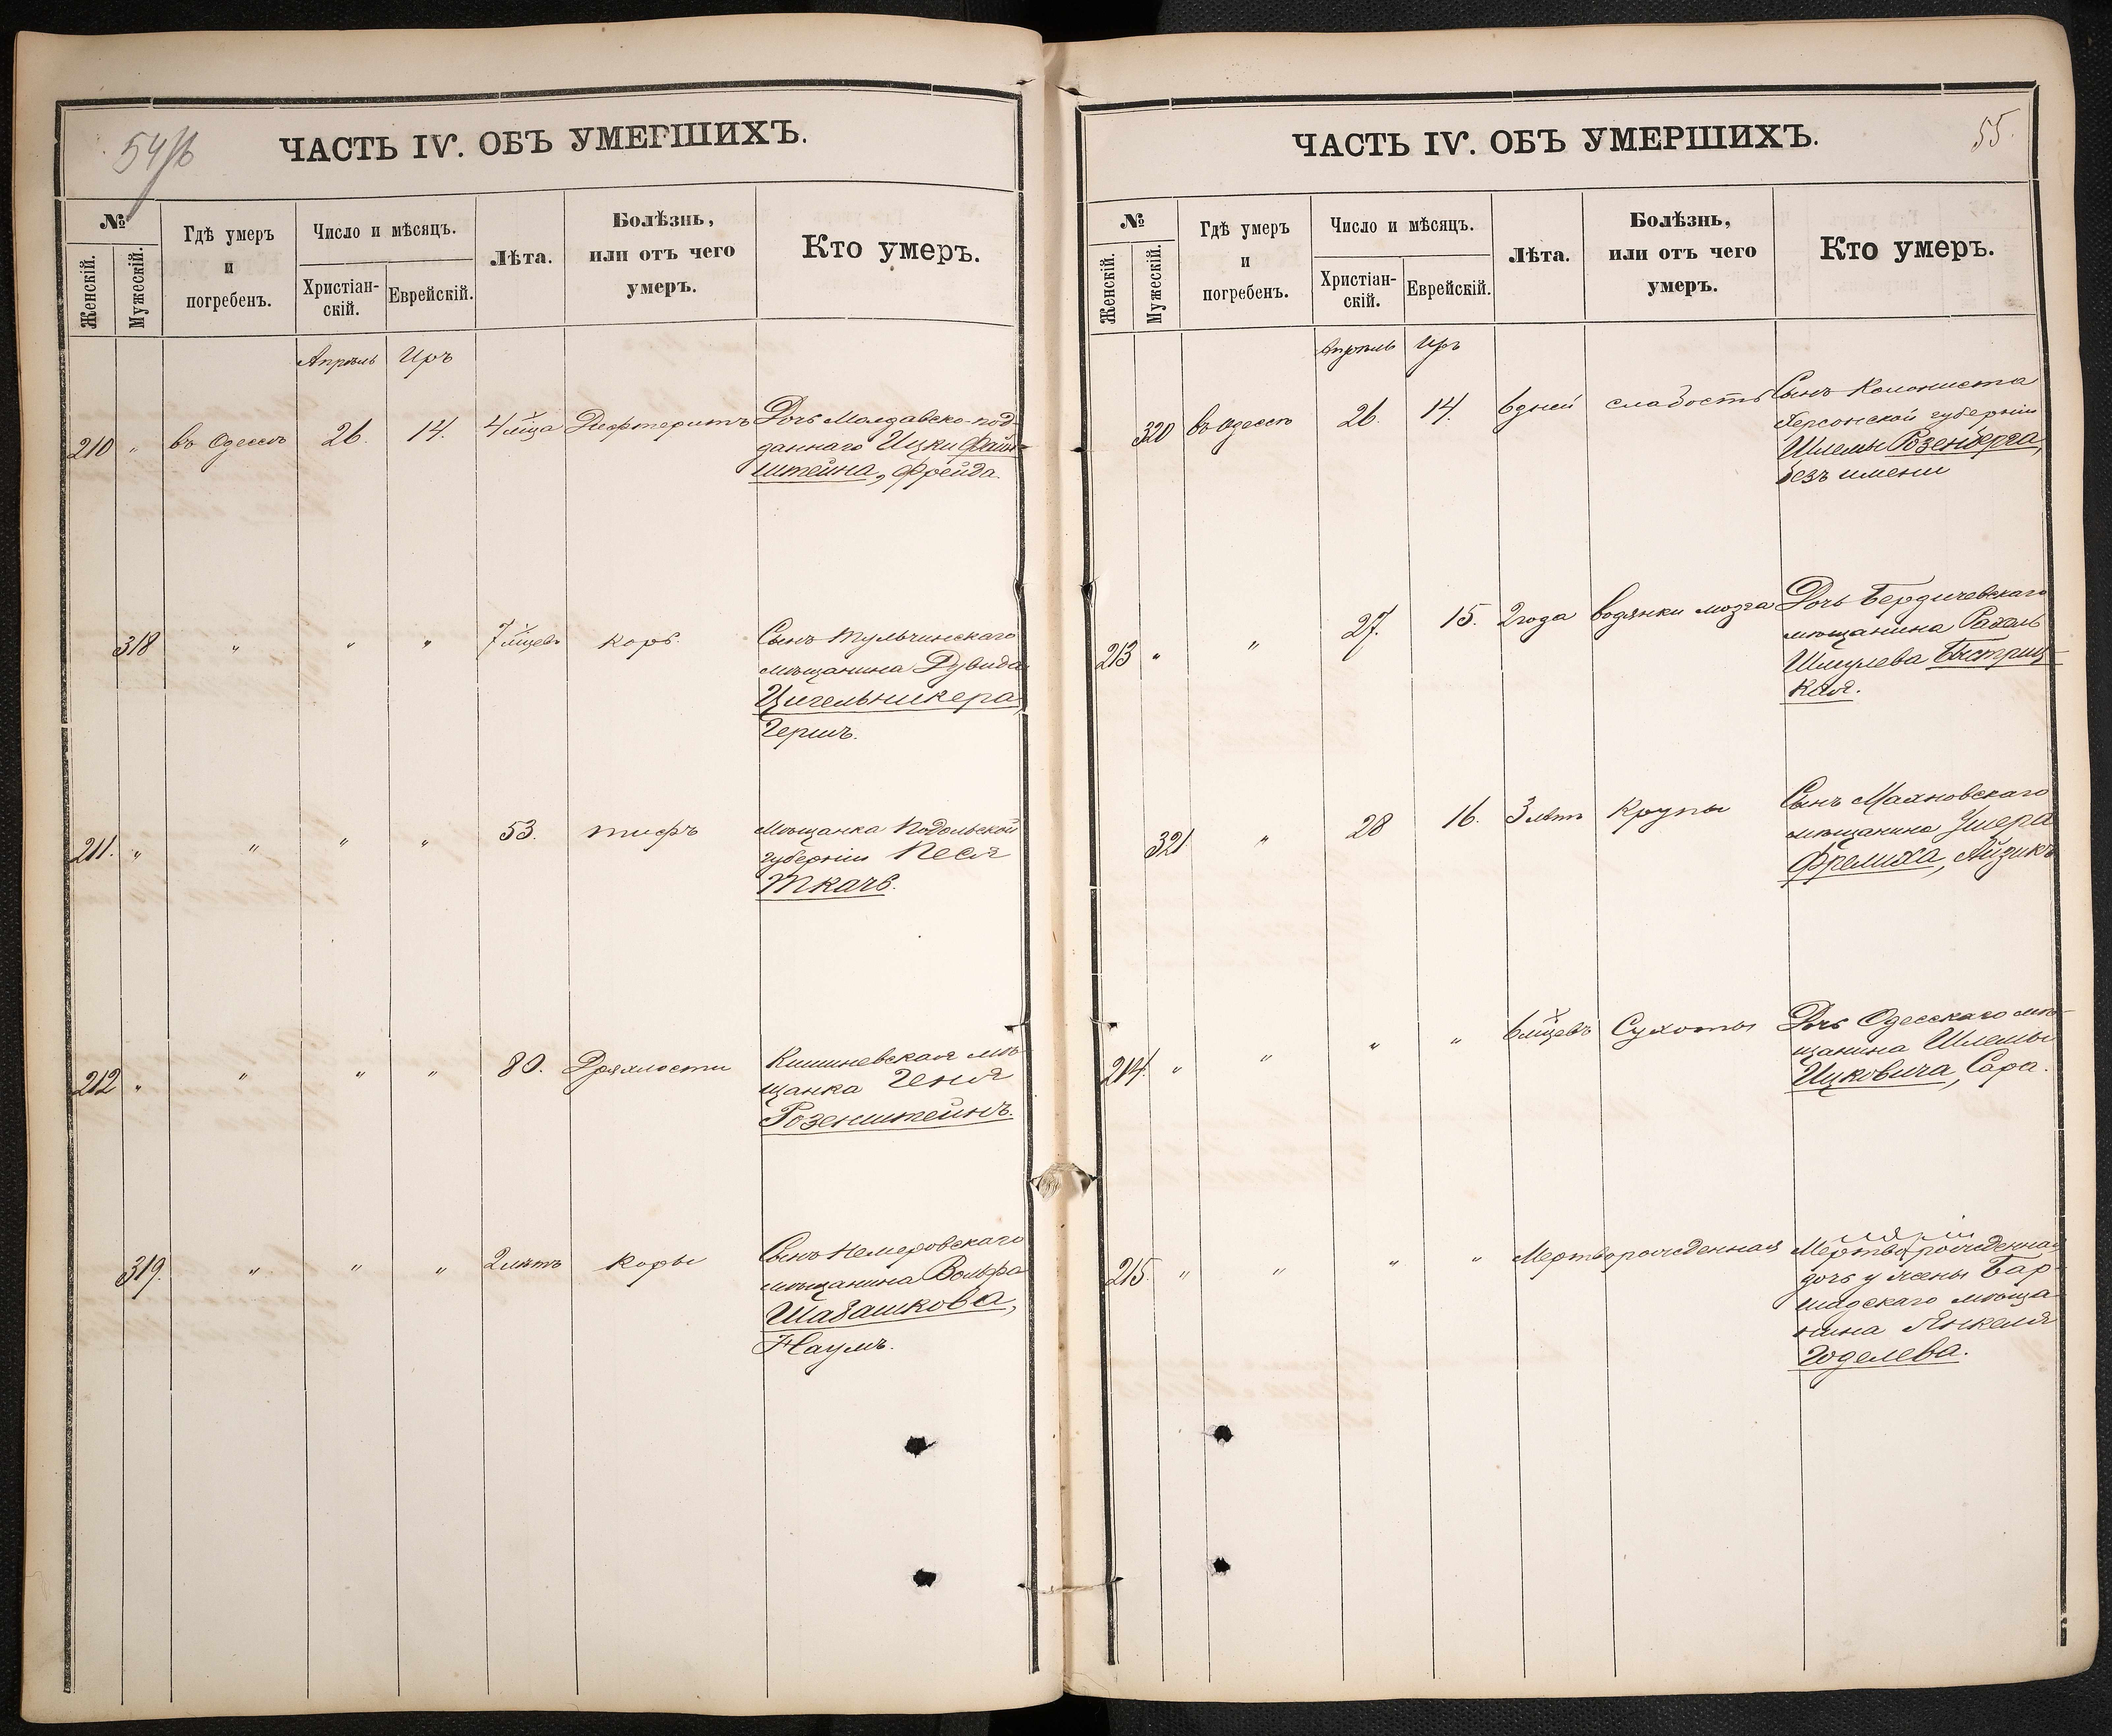 54/б
ЧАСТЬ IV. ОБЪ УМЕРШИХЪ.
№
Женскій.
Мужескій.
Гдѣ умеръ
и
погребенъ.
Число и мѣсяцъ.
Христіан-
скій.
Еврейскій.
Лѣта.
Болѣзнь,
или отъ чего
умеръ.
Кто умеръ.
Апрѣль Иръ
210 " въ Одессѣ 26. 14. 4 мѣца Дифтеритъ Дочь Молдавско-под-
даннаго Ицки Файн-
штейна, Фрейда.
318 " " " 7 мѣцевъ корь. Сынъ Тульчинскаго
мѣщанина Дувида
Цигельникера,
Гершъ.
211. " " " " 53. тифъ Мѣщанка Подольской
губерніи Песя
Ткачъ.
212 " " " " 80. Дряхлости Кишиневская мѣ-
щанка Геня
Розенштейнъ.
319. " " " 2 лѣтъ Коры Сынъ Немеровскаго
мѣщанина Вольфа
Шабашкова,
Наумъ.
55.
ЧАСТЬ IV. ОБЪ УМЕРШИХЪ.
№
Женскій.
Мужескій.
Гдѣ умеръ
и
погребенъ.
Число и мѣсяцъ.
Христіан-
скій.
Еврейскій.
Лѣта.
Болѣзнь,
или отъ чего
умеръ.
Кто умеръ.
Апрѣль Иръ
320 въ Одессѣ 26. 14. 6 дней слабость Сынъ Колониста
Херсонской губерніи
Шлемы Розенберга,
безъ имени
213 " " 27. 15. 2 года водянки мозга Дочь Бердичевскаго
мѣщанина Рахель
Шмулева Быстриц-
кая.
321 " 28 16. 3 лѣтъ Крупы Сынъ Махновскаго
мѣщанина Ушера
Фрелиха, Айзикъ
214. " " " " 6 мѣцевъ Сухоты Дочь Одесскаго мѣ-
щанина Шлемы
Ицковича, Сара.
215. " " " " Мертворожденная Мертворожденная
дочь у жены Бар-
шадскаго мѣща-
нина Янкеля
Годелева.